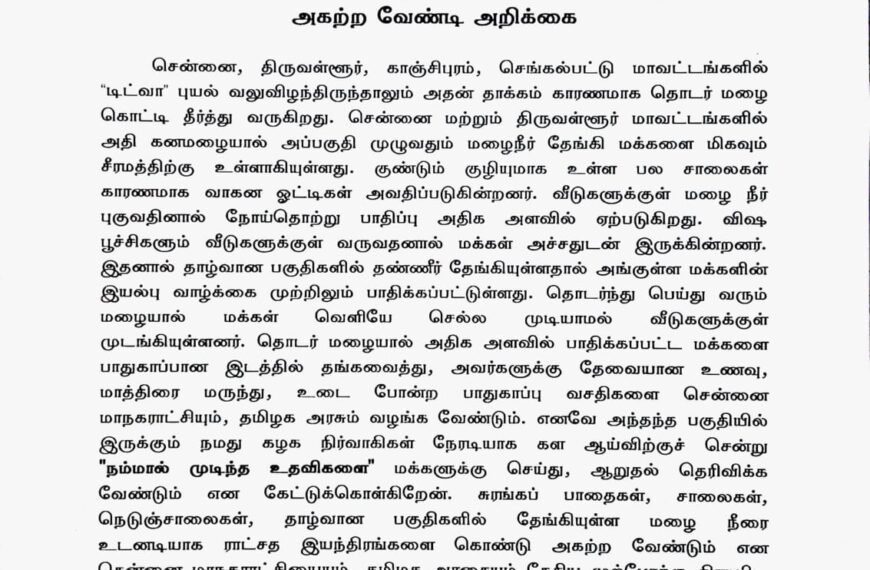 அகற்ற வேண்டி அறிக்கை
சென்னை, திருவள்ளூர், காஞ்சிபுரம், செங்கல்பட்டு மாவட்டங்களில்
"டிட்வா" புயல் வலுவிழந்திருந்தாலும் அதன் தாக்கம் காரணமாக தொடர் மழை
கொட்டி தீர்த்து வருகிறது. சென்னை மற்றும் திருவள்ளூர் மாவட்டங்களில்
அதி கனமழையால் அப்பகுதி முழுவதும் மழைநீர் தேங்கி மக்களை மிகவும்
சீரமத்திற்கு உள்ளாகியுள்ளது. குண்டும் குழியுமாக உள்ள பல சாலைகள்
காரணமாக வாகன ஓட்டிகள் அவதிப்படுகின்றனர். வீடுகளுக்குள் மழை நீர்
புகுவதினால் நோய்தொற்று பாதிப்பு அதிக அளவில் ஏற்படுகிறது. விஷ
பூச்சிகளும் வீடுகளுக்குள் வருவதனால் மக்கள் அச்சதுடன் இருக்கின்றனர்.
இதனால் தாழ்வான பகுதிகளில் தண்ணீர் தேங்கியுள்ளதால் அங்குள்ள மக்களின்
இயல்பு வாழ்க்கை முற்றிலும் பாதிக்கப்பட்டுள்ளது. தொடர்ந்து பெய்து வரும்
மழையால் மக்கள் வெளியே செல்ல முடியாமல் வீடுகளுக்குள்
முடங்கியுள்ளனர். தொடர் மழையால் அதிக அளவில் பாதிக்கப்பட்ட மக்களை
பாதுகாப்பான இடத்தில் தங்கவைத்து, அவர்களுக்கு தேவையான உணவு,
மாத்திரை மருந்து, உடை போன்ற பாதுகாப்பு வசதிகளை சென்னை
மாநகராட்சியும், தமிழக அரசும் வழங்க வேண்டும். எனவே அந்தந்த பகுதியில்
இருக்கும் நமது கழக நிர்வாகிகள் நேரடியாக கள ஆய்விற்குச் சென்று
"நம்மால் முடிந்த உதவிகளை" மக்களுக்கு செய்து, ஆறுதல் தெரிவிக்க
வேண்டும் என கேட்டுக்கொள்கிறேன். சுரங்கப் பாதைகள், சாலைகள்,
நெடுஞ்சாலைகள், தாழ்வான பகுதிகளில் தேங்கியுள்ள மழை நீரை
உடனடியாக ராட்சத இயந்திரங்களை கொண்டு அகற்ற வேண்டும் என